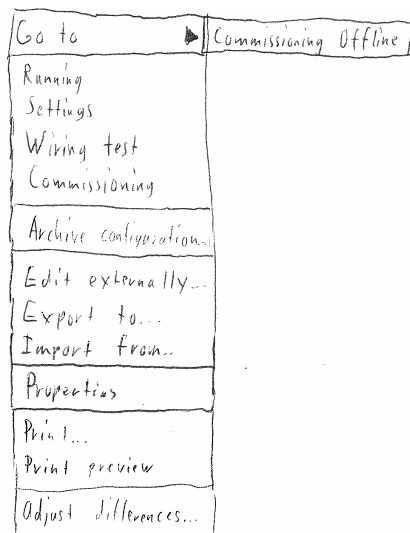 Go to ▶ Commissioning Offline
Running
Settings
Wiring test
Commissioning
Archive configuration...
Edit externally...
Export to...
Import from..
Properties
Print...
Print preview
Adjust differences...